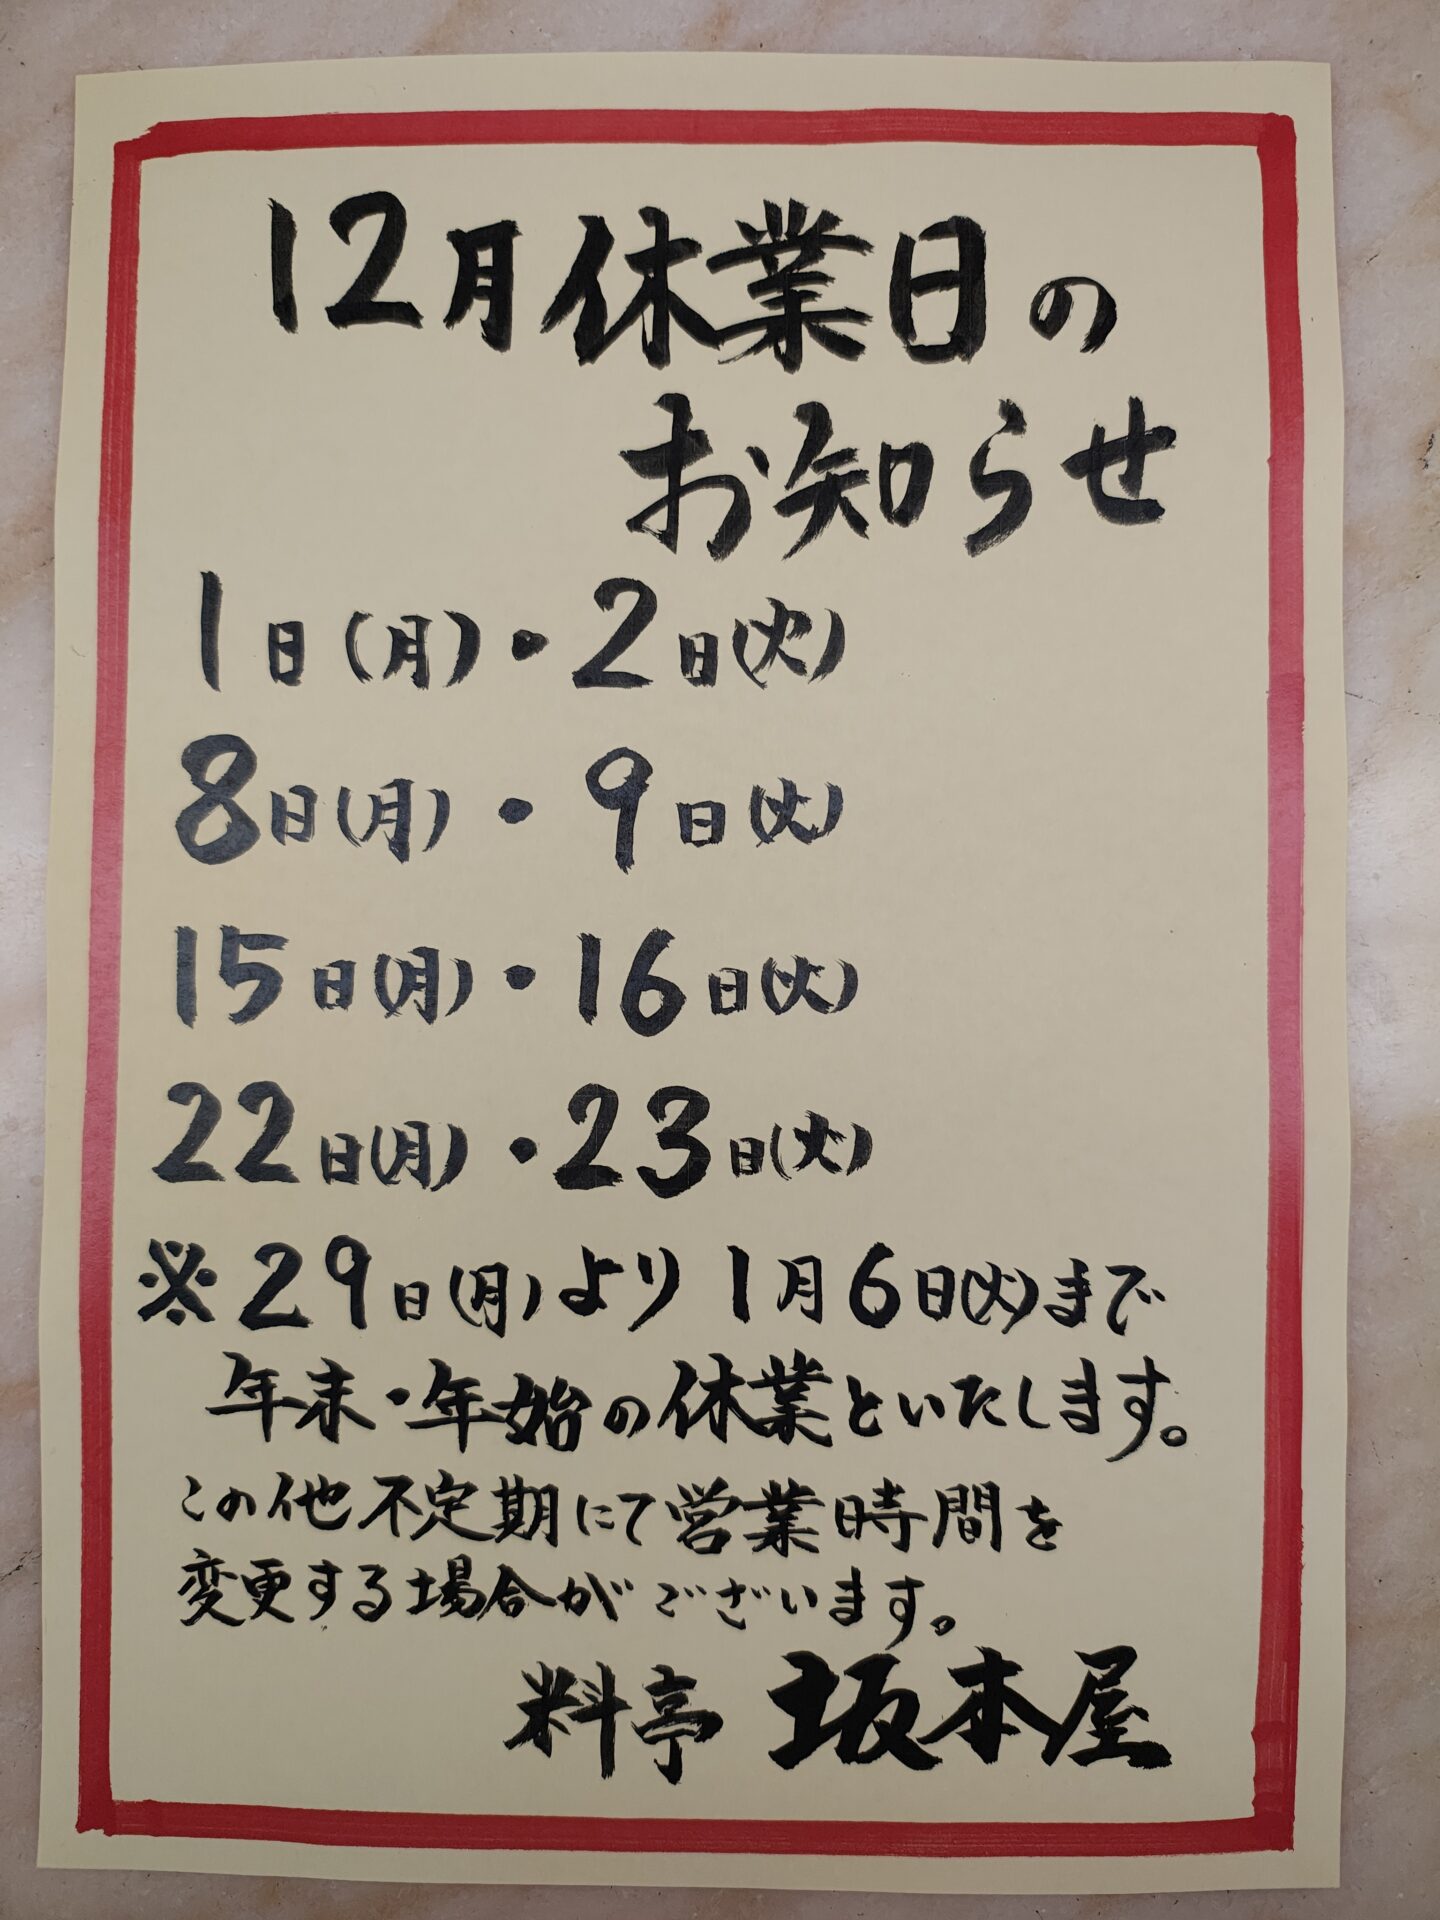 12月休業日の
お知らせ
1日(月)・2日(火)
8日(月)・9日(火)
15日(月)・16日(火)
22日(月)・23日(火)
※29日(月)より1月6日(火)まで
年末・年始の休業といたします。
この他不定期にて営業時間を
変更する場合がございます。
料亭 坂本屋